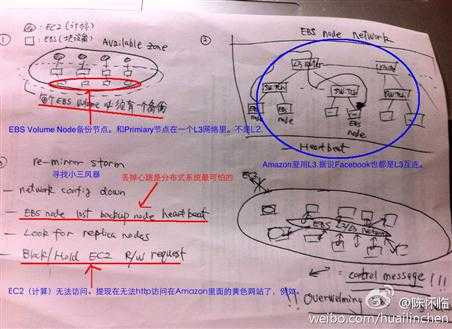 ○: EC2 (计算)
□: EBS (块设备)
①
Available zone
每个 EBS Volume 必须有一个备份
EBS Volume Node备份节点。和Primiary节点在一个L3网络里。不是L2
②
EBS node network
L3 switch
SWitch
EBS node
EBS node
Heartbeat
Amazon爱用L3.据说Facebook也都是L3互连。
③
re-mirror storm
寻找小三风暴
丢掉心跳是分布式系统最可怕的
- network config down
- EBS node lost backup node heartbeat
- Look for replica nodes
- Block/Hold EC2 R/W request
EC2（计算）无法访问。提现在无法http访问在Amazon里面的黄色网站了，例如。
EC2
EBS L2/L3 Network
= control message !!!
!! Overwelming
@陈怀临
weibo.com/huailinchen